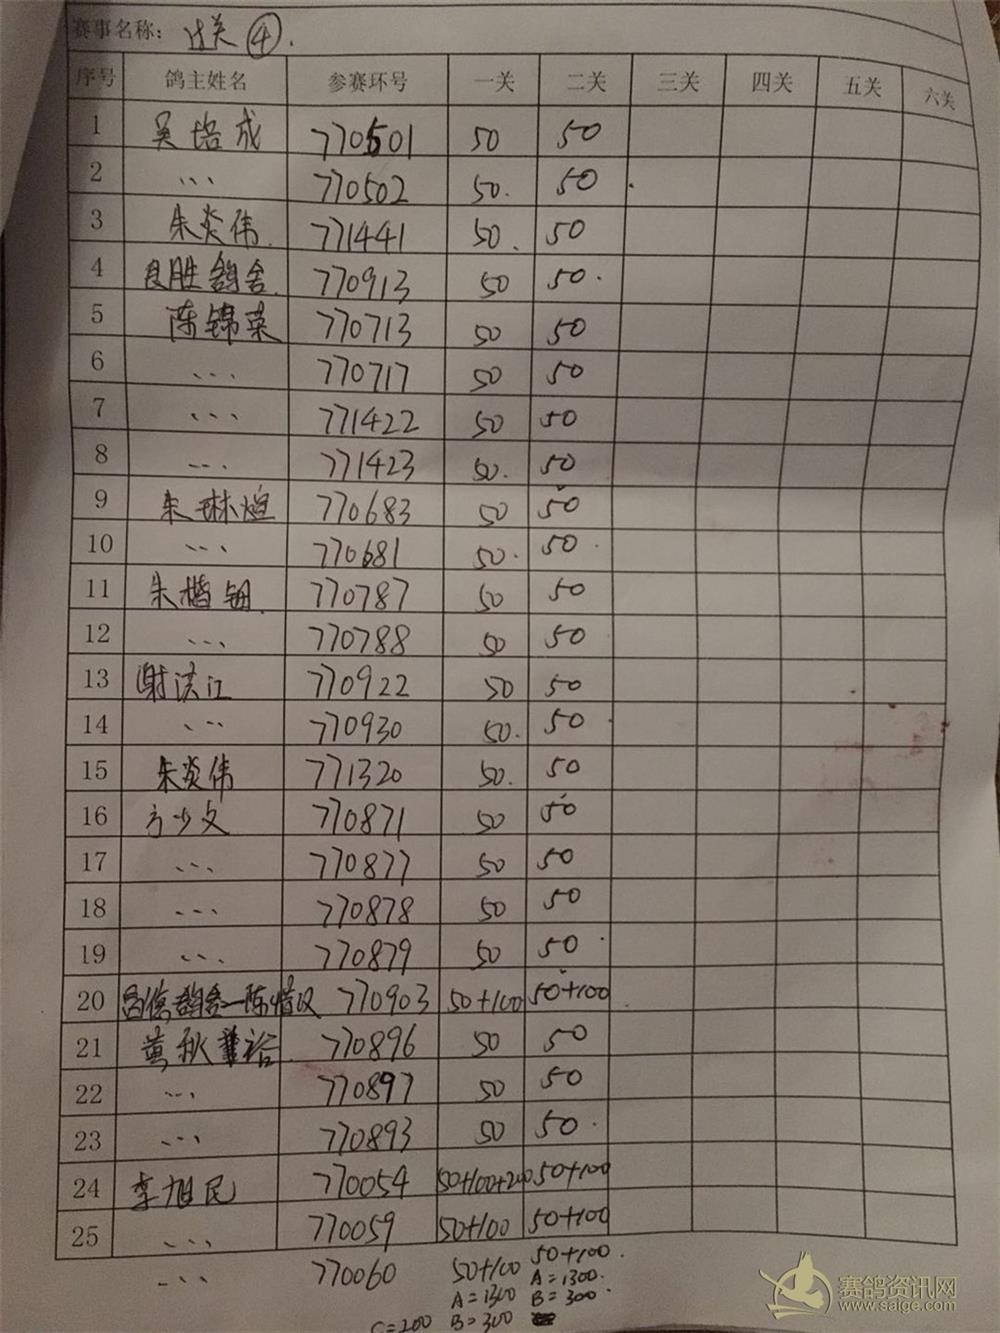 赛事名称: 过关④.
序号 鸽主姓名 参赛环号 一关 二关 三关 四关 五关 六关
1 吴培成 770501 50 50
2 、、、 770502 50. 50
3 朱炎伟. 771441 50. 50
4 良胜鸽舍. 770913 50 50.
5 陈锦荣 770713 50 50
6 、、、 770717 50 50
7 、、、 771422 50 50
8 、、、 771423 50. 50
9 朱琳煊 770683 50 50
10 、、、 770681 50. 50.
11 朱楷钿. 770787 50 50
12 、、、 770788 50 50
13 谢洪江 770922 50 50
14 、、、 770930 50. 50.
15 朱炎伟 771320 50. 50
16 方少文 770871 50 50
17 、、、 770877 50 50
18 、、、 770878 50 50
19 、、、 770879 50 50.
20 昌信鸽舍—陈惜汉 770903 50+100 50+100
21 黄秋裕. 770896 50 50
22 、、、 770897 50 50
23 、、、 770893 50 50.
24 李旭民 770054 50+100+200 50+100
25 、、、 770059 50+100 50+100
、、、 770060 50+100 50+100.
A=1300 A=1300.
C=200 B=300 B=300.
赛鸽资讯网
www.saige.com